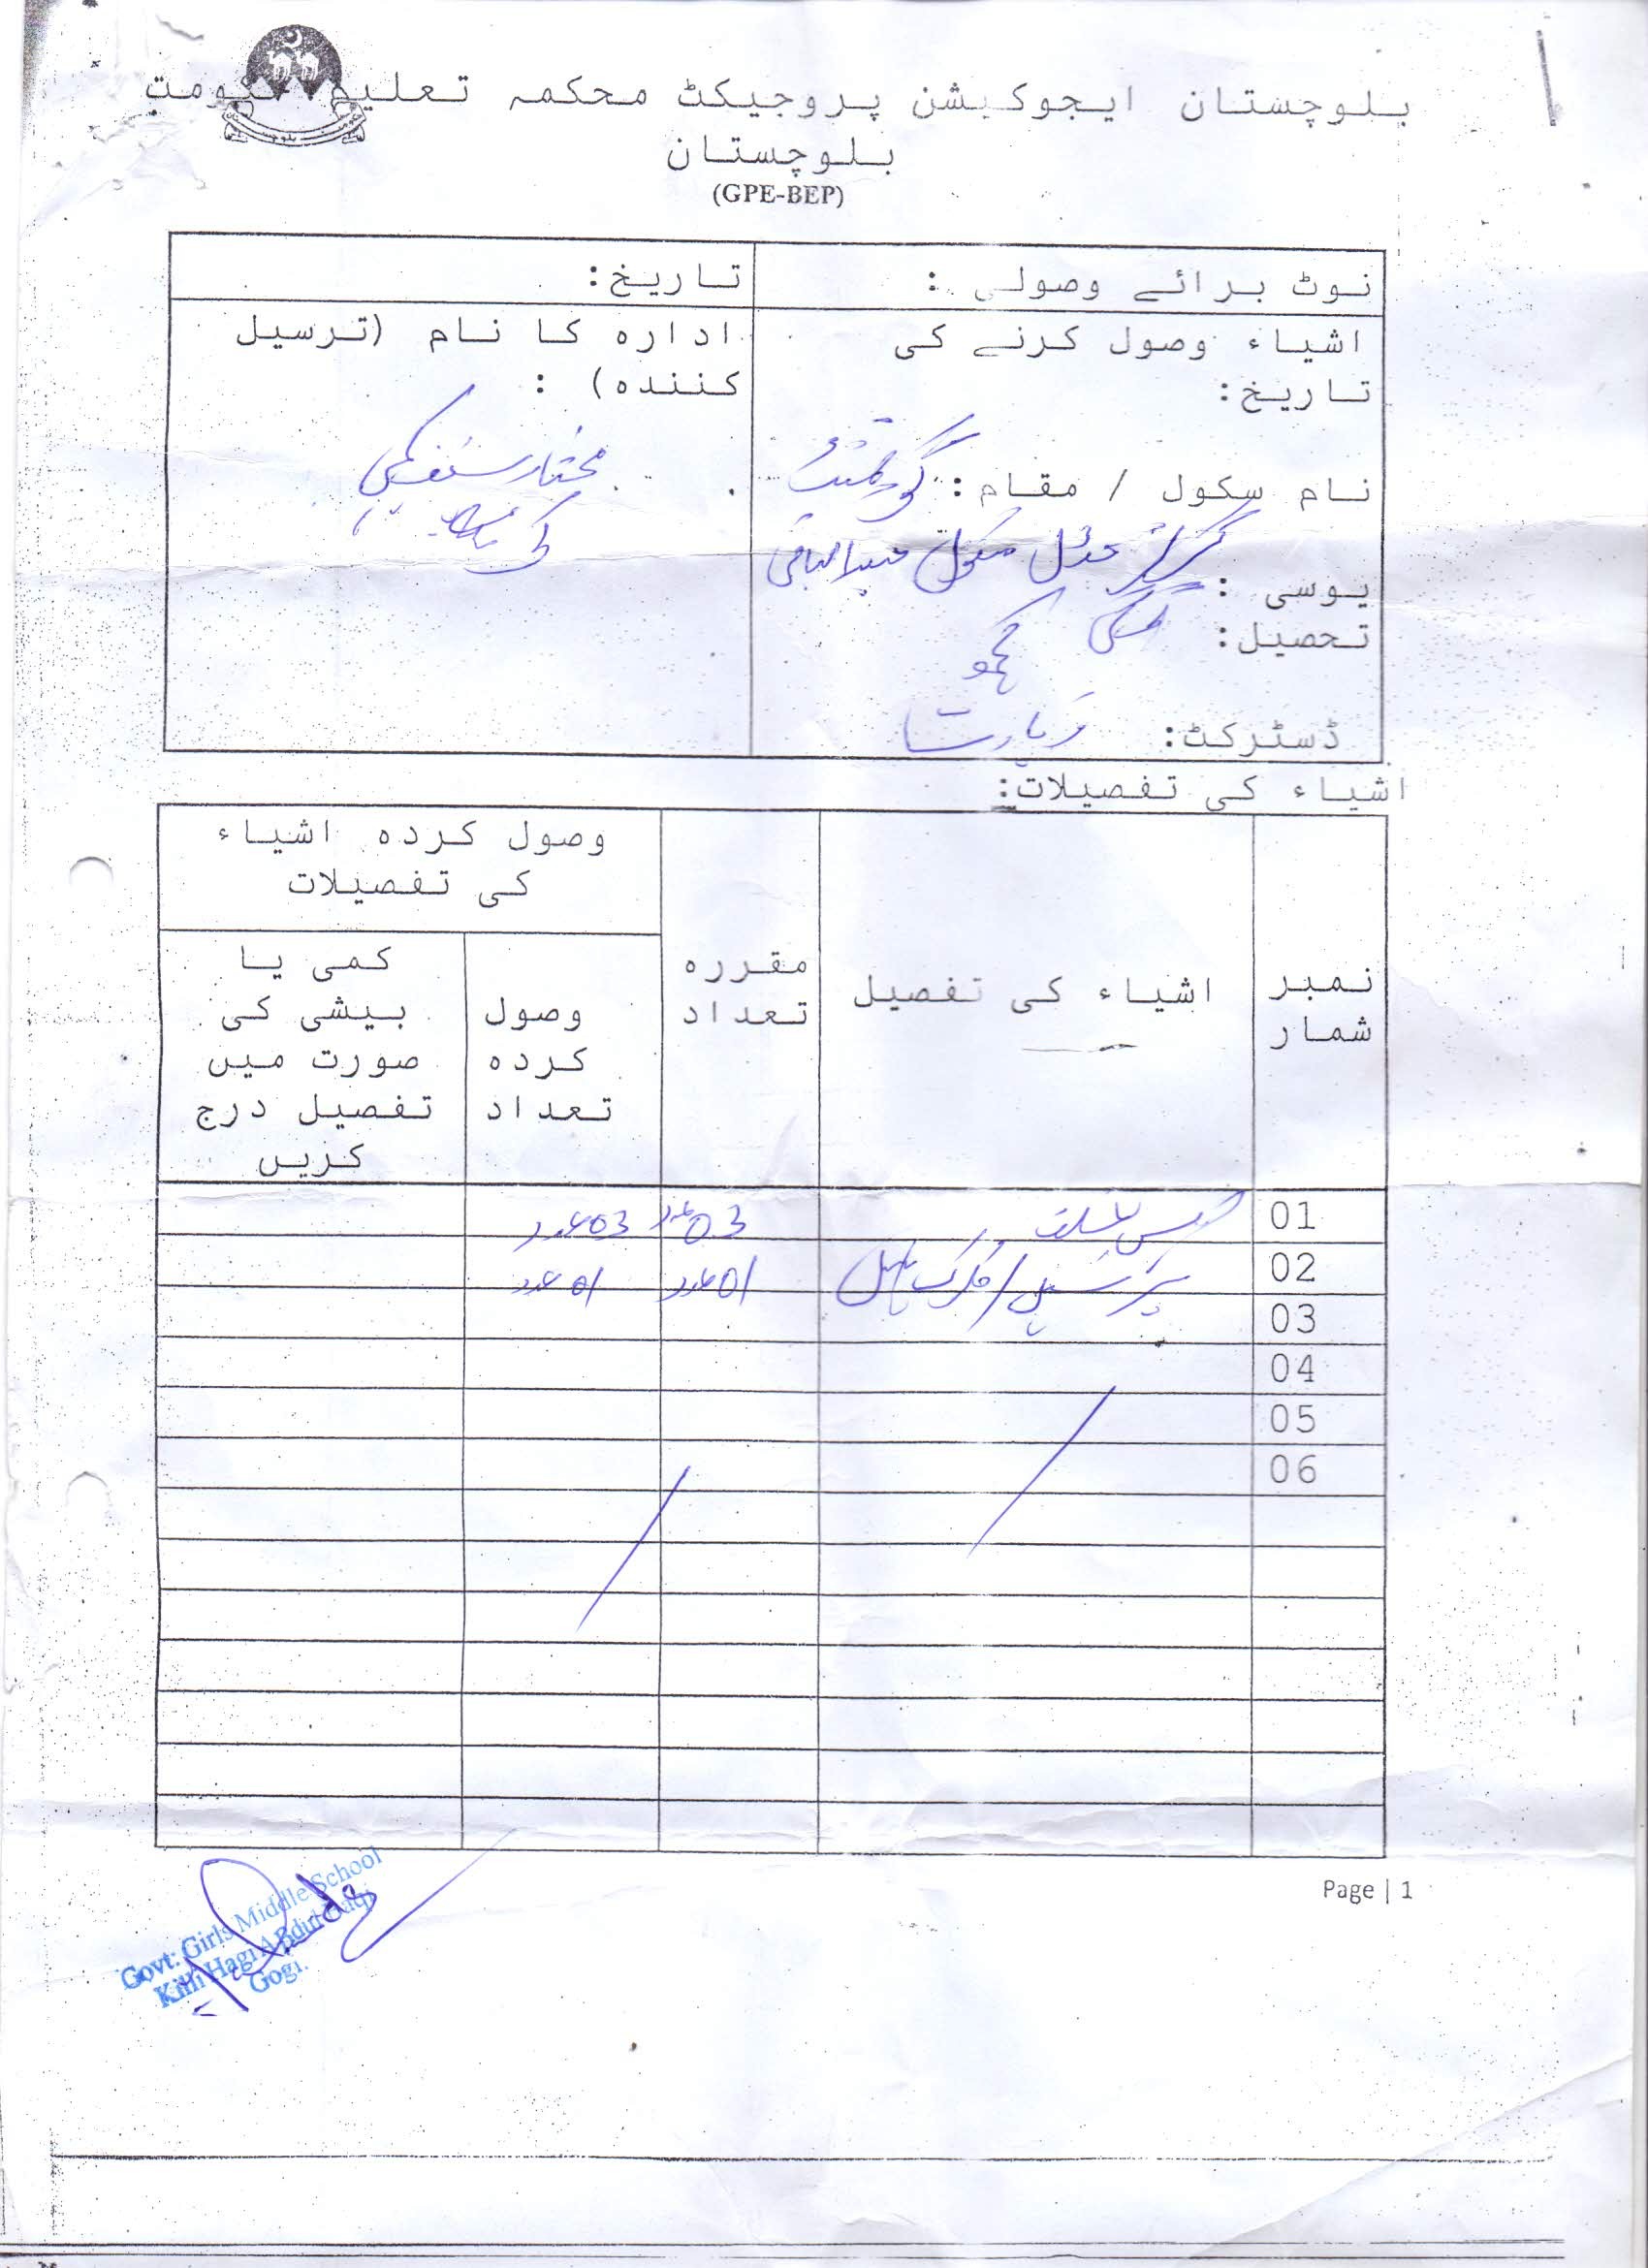 بلوچستان ایجوکیشن پروجیکٹ محکمہ تعلیم حکومت
بلوچستان
(GPE-BEP)
نوٹ برائے وصولی :
تاریخ:
اشیاء وصول کرنے کی
تاریخ:
ادارہ کا نام (ترسیل
کنندہ) :
نام سکول / مقام: گورنمنٹ
گرلز مڈل سکول عبدالباقی
یوسی :
تحصیل:
ڈسٹرکٹ: زیارت
مختار سنز کمپنی
کوئٹہ
اشیاء کی تفصیلات:
نمبر
شمار
اشیاء کی تفصیل
مقررہ
تعداد
وصول کردہ اشیاء
کی تفصیلات
وصول
کردہ
تعداد
کمی یا
بیشی کی
صورت میں
تفصیل درج
کریں
01 03 عدد 03 عدد
02 01 عدد 01 عدد
03
04
05
06
Page | 1
Govt: Girls Middle School
Killi Hagi Abdul Baqi
Gogi.